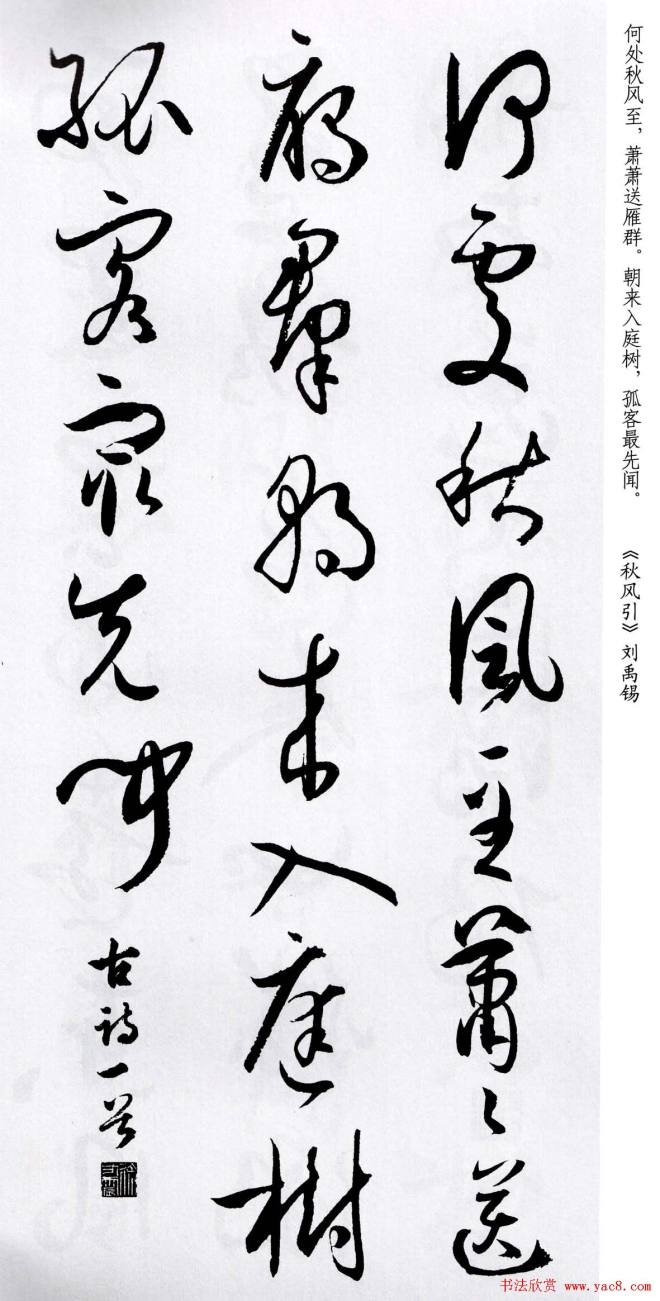 何处秋风至，萧萧送雁群。朝来入庭树，孤客最先闻。 《秋风引》刘禹锡
何處秋風至蕭々送
雁羣朝来入庭樹
孤客最先聞 古詩一首
书法欣赏 www.yac8.com